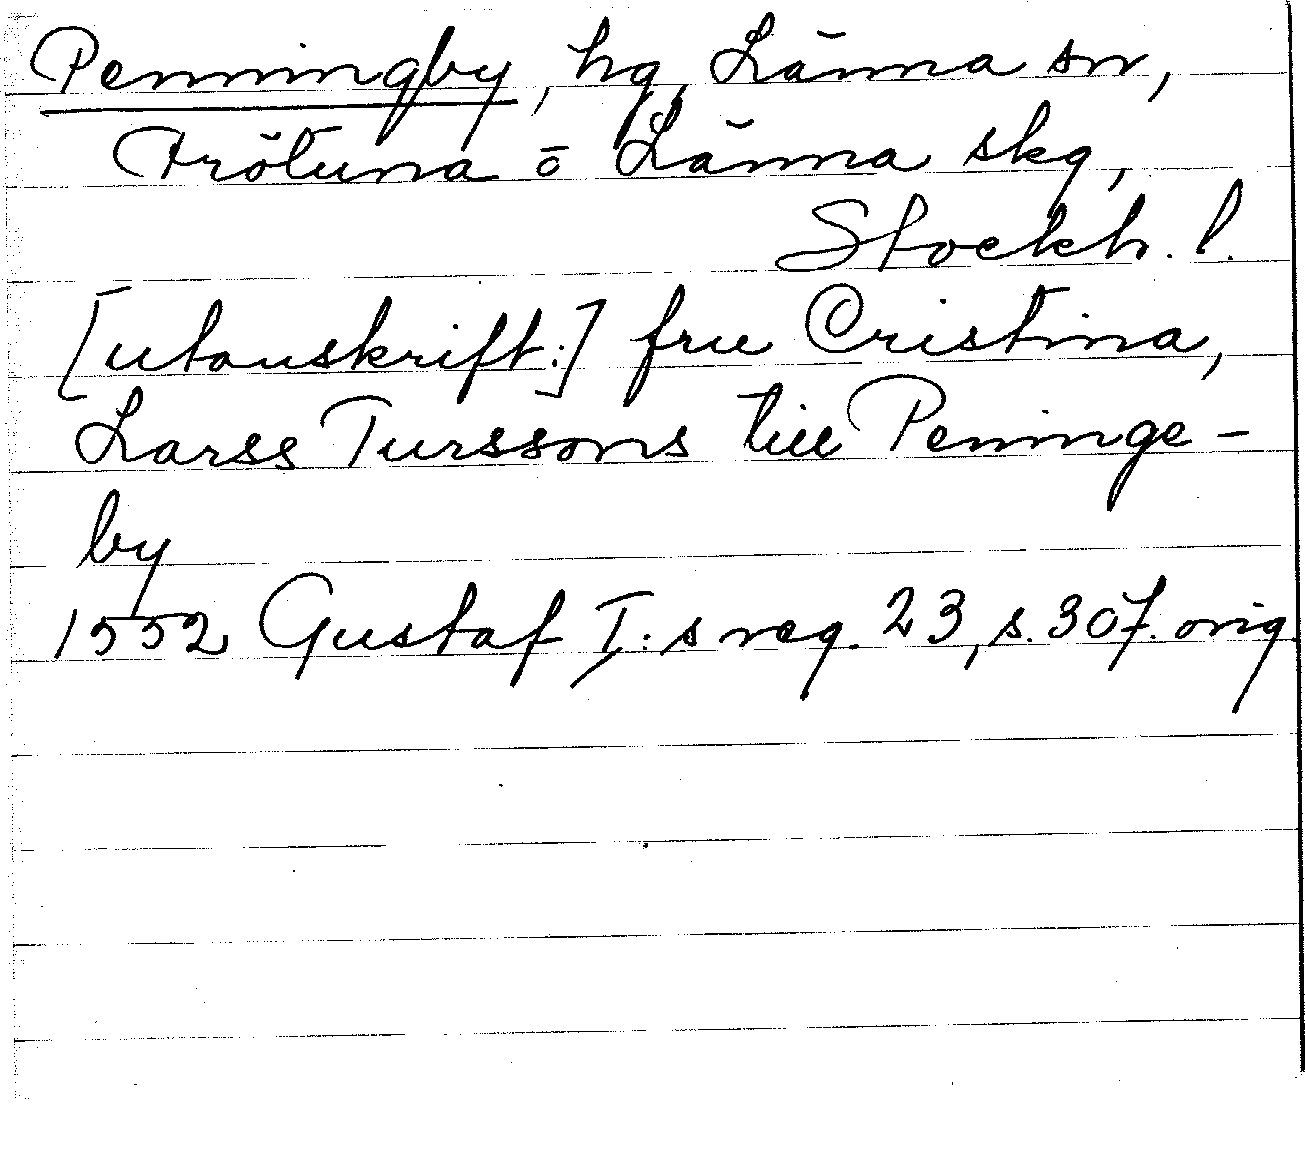 Penningby, hg, Länna sn,
Frötuna o Länna skg,
Stockh. l.
[utanskrift:] frue Cristina,
Larss Turssons till Peninge-
by
1552 Gustaf I:s reg. 23, s. 307. orig